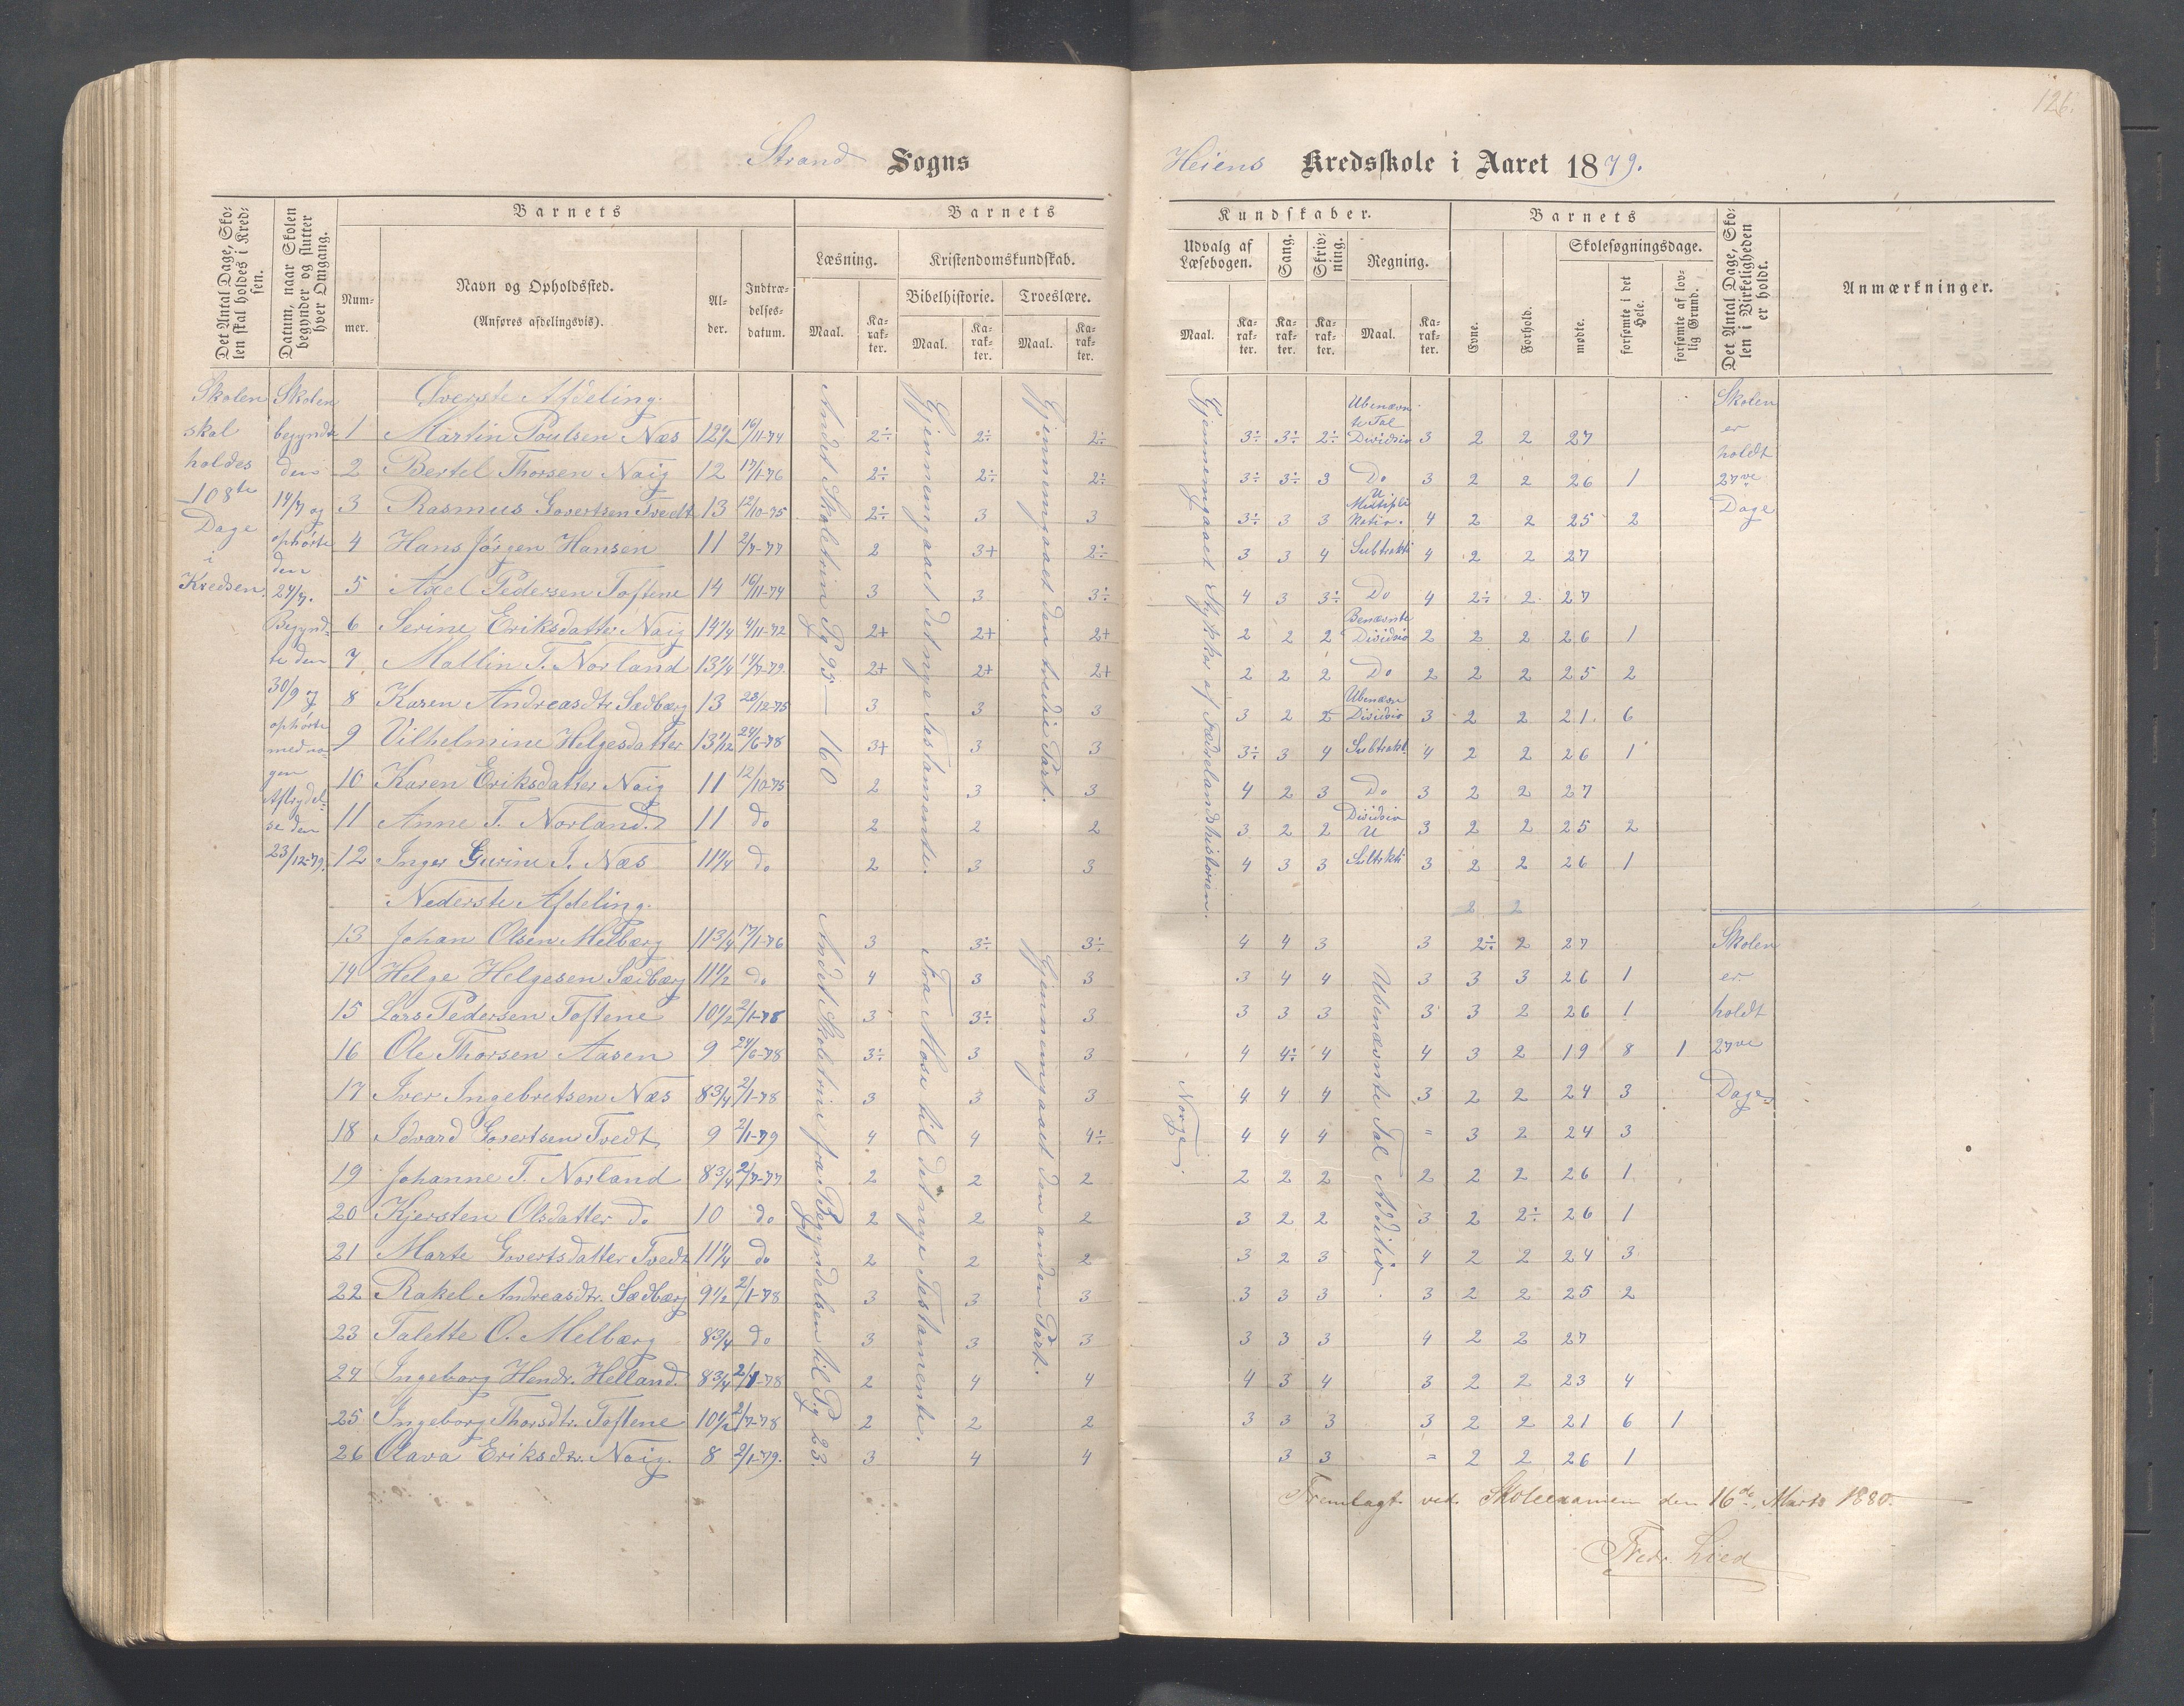 126.
Strand Sogns
Heiens Kredsskole i Aaret 1879.
Det Antal Dage, Skolen skal holdes i Kredsen.
Datum, naar Skolen begynder og slutter hver Omgang.
Barnets
Nummer.
Navn og Opholdssted.
(Anføres afdelingsvis).
Alder.
Indtrædelsesdatum.
Barnets
Læsning.
Kristendomskundskab.
Bibelhistorie. Troeslære.
Maal. Karakter. Maal. Karakter. Maal. Karakter.
Kundskaber.
Udvalg af Læsebogen. Sang. Skrivning. Regning.
Maal. Karakter. Karakter. Karakter. Maal. Karakter.
Barnets
Evne. Forhold.
Skolesøgningsdage.
mødte. forsømte i det Hele. forsømte af lovlig Grund.
Det Antal Dage, Skolen i Virkeligheden er holdt.
Anmærkninger.
Skolen
skal
holdes
108te
Dage
i
Kredsen.
Skolen
begyndte
den
14/7 og
ophørte
den
24/7.
Begynd-
te den
30/9 og
ophørte
med no-
gen
Afbrydel-
se den
23/12-79.
Andet Skoletrin Pg 95-160
Gjennemgaaet det nye Testamente.
Gjennemgaaet den tredie Part.
Gjennemgaaet Stykker af Fædrelandshistorien.
Øverste Afdeling.
1 Martin Poulsen Næs 12 1/2 16/11-74 2÷ 2÷ 2÷ 3÷ 3÷ 2÷ Ubenævnte Tal Divisio 3 2 2 27
2 Bertel Thorsen Naig 12 17/1-76 2÷ 2÷ 2÷ 3÷ 3÷ 3 Do 3 2 2 26 1
3 Rasmus Govertsen Tvedt 13 12/10-75 2÷ 3 3 3÷ 3 3 U Multiplikatio. 4 2 2 25 2
4 Hans Jørgen Hansen 11 2/7-77 2 3+ 2÷ 3 3 4 Subtrakti 4 2 2 27
5 Axel Pedersen Toftene 14 16/11-74 3 3 3÷ 4 3 3÷ Do 4 2÷ 2 27
6 Serine Eriksdatter Naig 14 1/4 4/11-72 2+ 2+ 2+ 2 2 2 Benævnte Divisio 2 2 2 26 1
7 Mallin T. Norland 13 1/4 14/7-79. 2+ 2+ 2+ 2 2 2 Do 2 2 2 25 2
8 Karen Andreasdtr Sædbærg 13 28/12-75 3 3 3 3 2 2 Ubenævn Divisio 3 2 2 21 6
9 Vilhelmine Helgesdatter 13 1/12 24/6-78 3+ 3 3 3÷ 3 4 Subtrakt. 4 2 2 26 1
10 Karen Eriksdatter Naig 11 12/10-75 2 3 3 4 2 3 Do 3 2 2 27
11 Anne T. Norland. 11 do 2 2 2 3 2 2 Divisio U 3 2 2 25 2
12 Inger Gurine T. Næs 11 1/4 do 2 3 3 4 3 3 Subtrkti 3 2 2 26 1
Skolen
er
holdt
27ve
Dage
Nederste Afdeling.
2 2
Andet Skoletrin fra Begyndelsen til Pg 23.
Fra Mose til det nye Testamente.
Gjennemgaaet den anden Part.
Norge
Ubenævnte Tal Additio
13 Johan Olsen Melbærg 11 3/4 17/1-76 3 3÷ 3÷ 4 4 3 3 2÷ 2 27
14 Helge Helgesen Sædbærg 11 1/2 do 4 3 3 3 4 4 3 3 3 26 1
15 Lars Pedersen Toftene 10 1/2 2/1-78 3 3÷ 3 3 3 3 3 3 2 26 1
16 Ole Thorsen Aasen 9 24/6-78 3÷ 3 3 4 4÷ 4 4 3 2 19 8 1
17 Iver Ingebretsen Næs 8 3/4 2/1-78 3 3 3 4 4 4 3 2 2 24 3
18 Edvard Govertsen Tvedt 9 2/1-79 4 4 4÷ 4 4 4 = 3 2 24 3
19 Johanne T. Norland 8 3/4 2/7-77 2 2 2 2 2 2 2 2 2 26 1
20 Kjersten Olsdatter do 10 do 2 2 2 3 2 2 3 2 2÷ 26 1
21 Marte Govertsdatter Tvedt 11 1/4 do 2 2 2 3 2 3 4 2 2 24 3
22 Rakel Andreasdtr. Sædbærg 9 1/2 2/1-78 3 3 3 3 3 3 3 2 2 25 2
23 Talette O. Melbærg 8 3/4 do 3 3 3 3 3 3 4 2 2 27
24 Ingeborg Hendr. Helland. 8 3/4 2/1-78 2 4 4 4 3 4 3 2 2 23 4
25 Ingeborg Thorsdtr. Toftene 10 1/2 2/7-78 2 2 2 3 3 3 3 2 2 21 6 1
26 Olava Eriksdtr. Naig. 8 2/1-79. 3 4 4 3 3 = 2 2 26 1
Skolen
er
holdt
27ve
Dage.
Fremlagt ved Skoleexamen den 16de Marts 1880.
Fredr. Lied